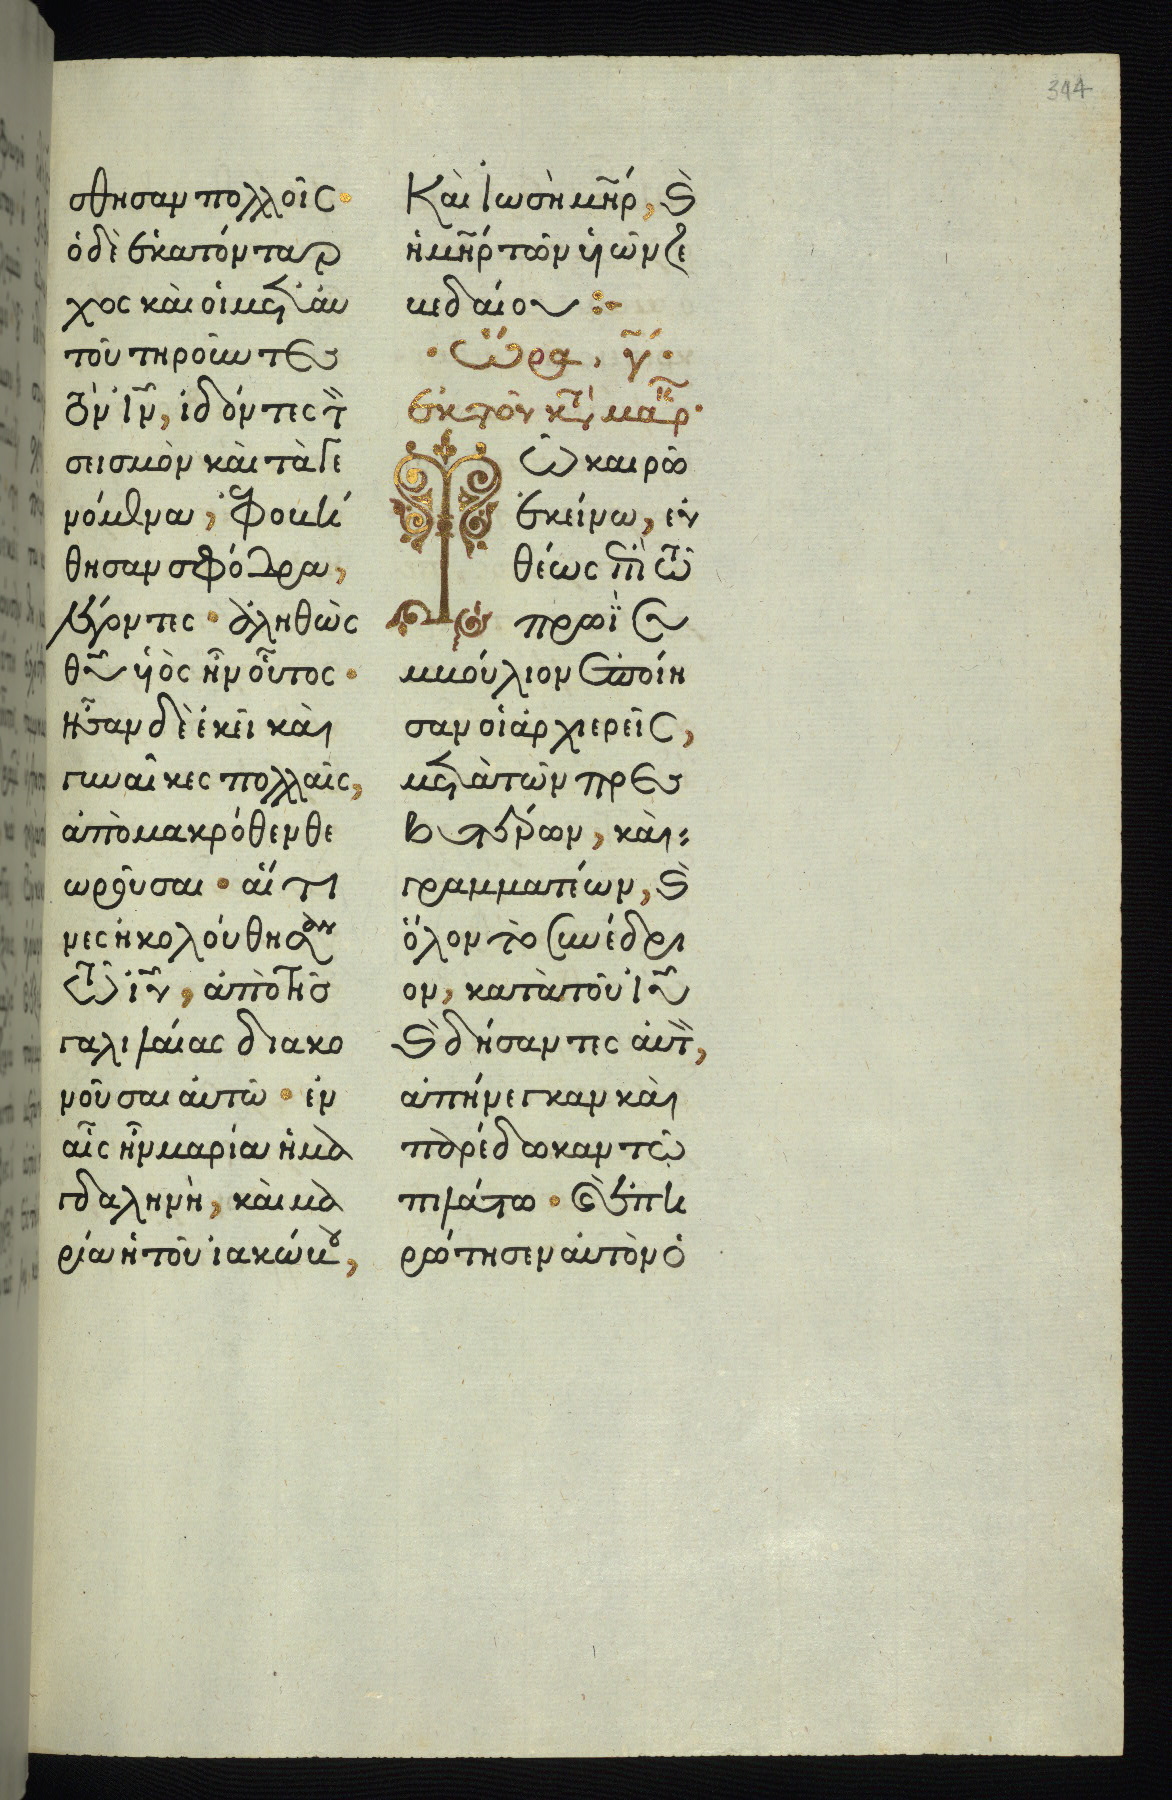 344
σθησαν πολλοῖς·
ὁ δὲ ἑκατόνταρ
χος καὶ οἱ μετ' αυ
τοῦ τηροῦντες
τὸν ἰν, ἰδόντες τ
σεισμὸν καὶ τὰ γε
νόμενα, ἐφοβή
θησαν σφόδρα,
λέγοντες· ἀληθῶς
θυ ὑὸς ἦν οὗτος·
Ησαν δὲ ἐκεῖ καὶ
γυναῖκες πολλαὶς,
ἀπὸ μακρόθεν θε
ωροῦσαι· αἵ τι
νες ἠκολούθησαν
τῶ ιυ, ἀπὸ τῆς
γαλιλαίας διακο
νοῦσαι αὐτῶ· ἐν
αἷς ἦν μαρία ἡ μα
γδαληνὴ, καὶ μα
ρία ἡ τοῦ ἰακώβου,
Καὶ ἰωσὴ μηρ, καὶ
ἡ μηρ τῶν ὑῶν ζε
βεδαίου :-
·Ὥρα, γ·
ἐκ τὸν κτ μαρκ·
Τῶ καιρῶ
ἐκείνω, εὐ
θέως ἐπὶ τῶ
πρωῒ συ
μβούλιον ἐποίη
σαν οἱ ἀρχιερεῖς,
μετὰ τῶν πρεσ
βυτέρων, καὶ
γραμματέων, καὶ
ὅλον τὸ συνέδρι
ον, κατὰ τοῦ ιυ
καὶ δήσαντες αὐτ,
ἀπήνεγκαν καὶ
παρέδωκαν τῶ
πιλάτω· καὶ ἐπη
ρώτησεν αὐτὸν ὁ